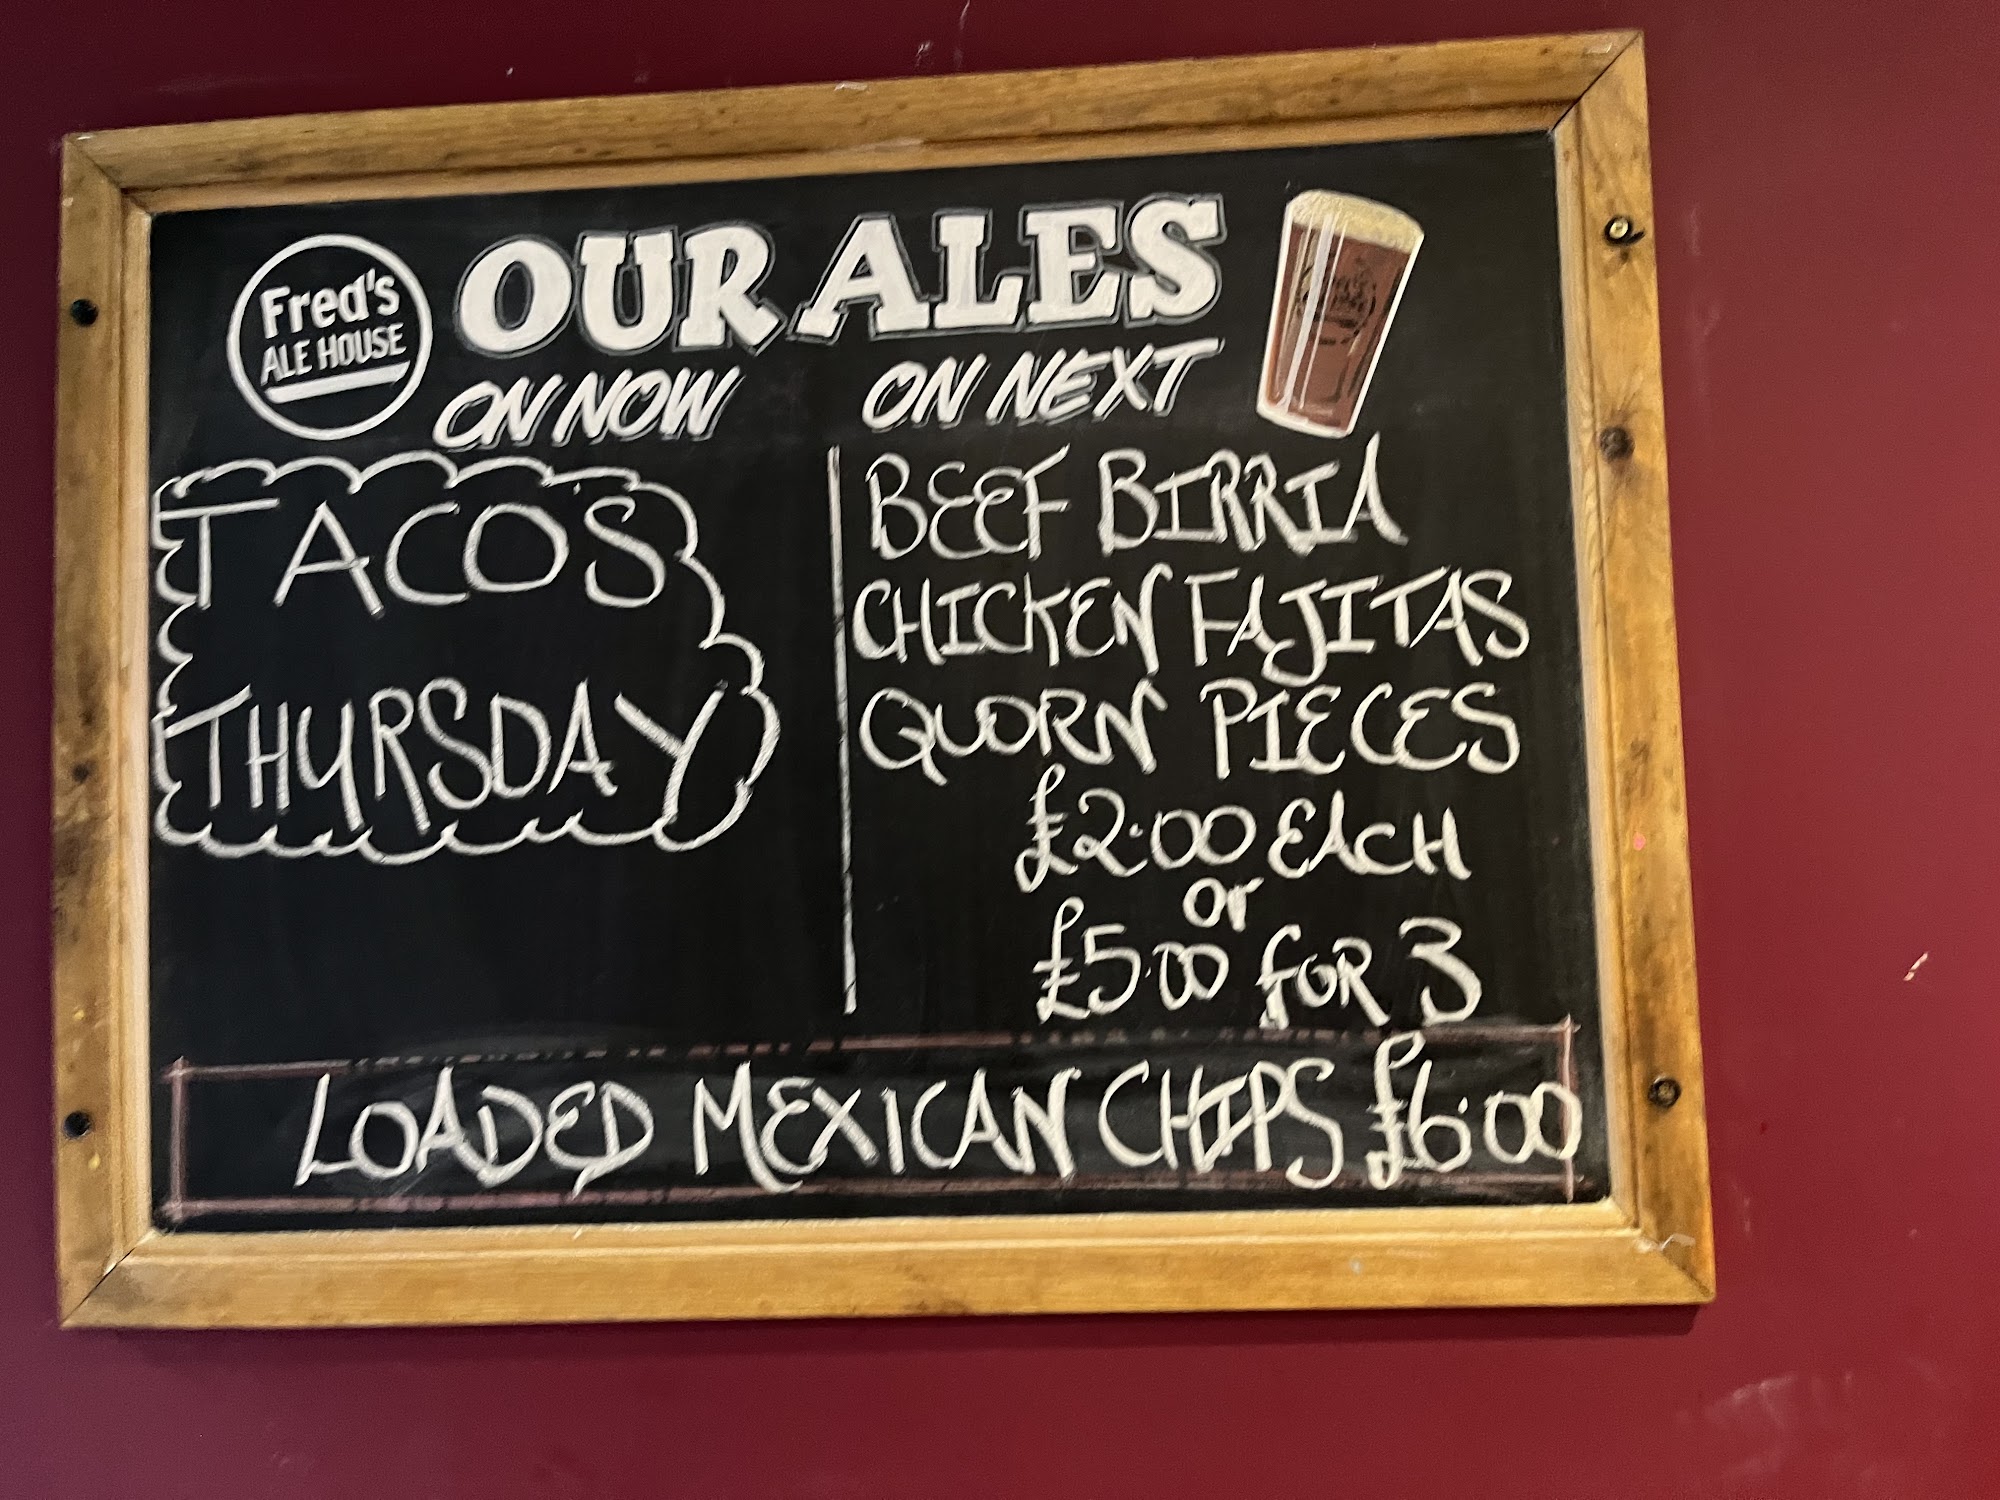 Fred's
ALE HOUSE
OUR ALES
ON NOW
ON NEXT
TACO'S
THURSDAY
BEEF BIRRIA
CHICKEN FAJITAS
QUORN PIECES
£2.00 EACH
or
£5.00 FOR 3
LOADED MEXICAN CHIPS £6.00